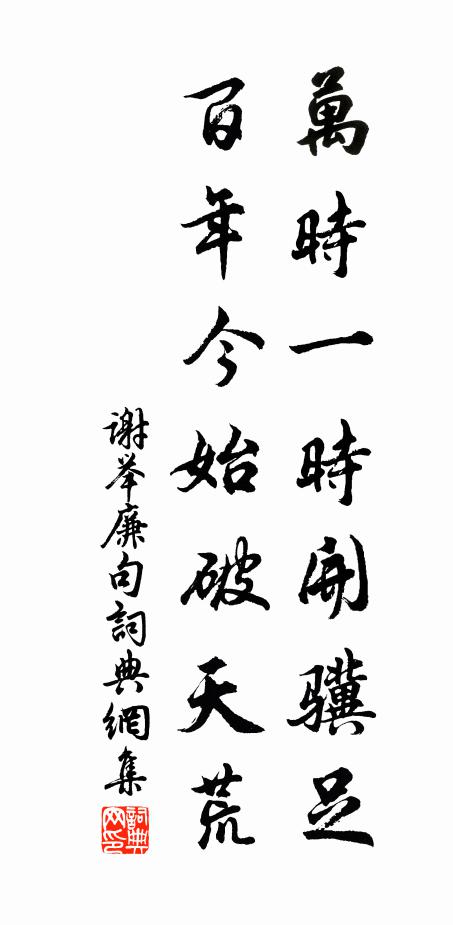 萬時一時開驥足
百年今始破天荒
謝举廉句詞典網集
詞典
网印